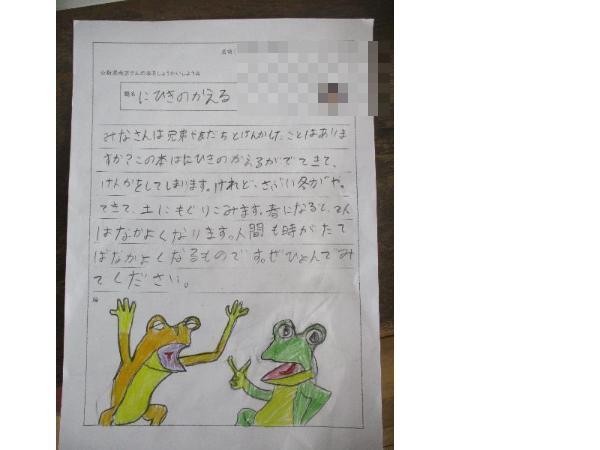 名前
お本をしょうかいしよう
題名 にひきのかえる
みなさんは兄弟や友だちとけんかした ことはありま
すか?この本はにひきのかえるがでてきて、
けんかをしてしまいます。けれど、さぶい冬がや
てきて、土にもぐりこみます。春になると、
はなかよくなります。人間も時がたて
ばなかよくなるものです。ぜひよんでみ
てください。
絵